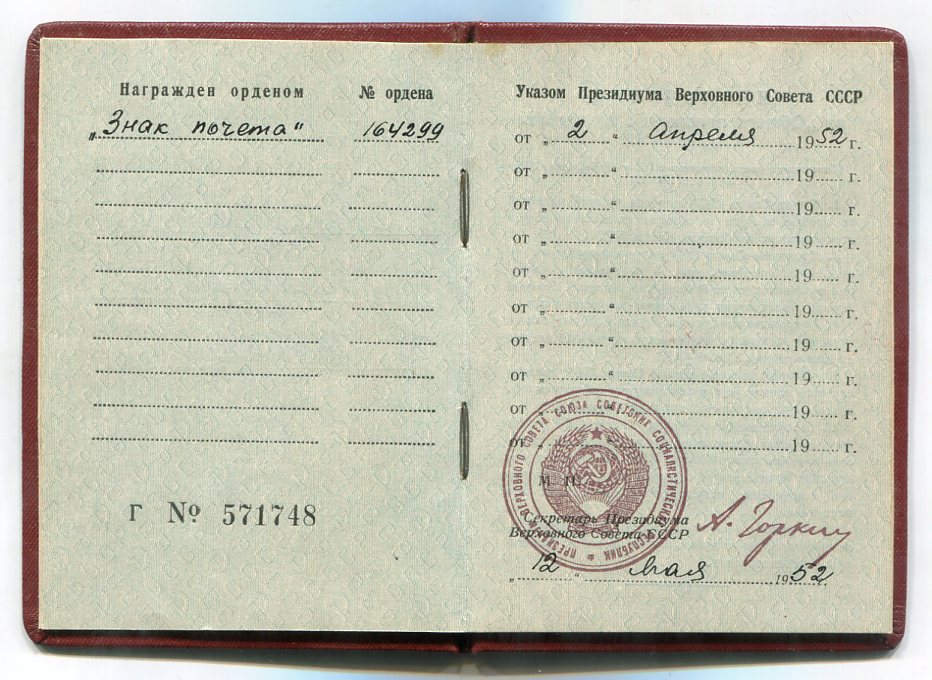 Награжден орденом № ордена
„Знак почета“ 164299
Г № 571748
Указом Президиума Верховного Совета СССР
от „ 2 “ апреля 1952 г.
от „ “ 19 г.
от „ “ 19 г.
от „ “ 19 г.
от „ “ 19 г.
от „ “ 19 г.
от „ “ 19 г.
от „ “ 19 г.
от „ “ 19 г.
от „ “ 19 г.
ПРЕЗИДИУМ ВЕРХОВНОГО СОВЕТА СОЮЗА СОВЕТСКИХ СОЦИАЛИСТИЧЕСКИХ РЕСПУБЛИК
М. П.
Секретарь Президиума
Верховного Совета СССР
А. Горкин
„ 12 “ мая 1952